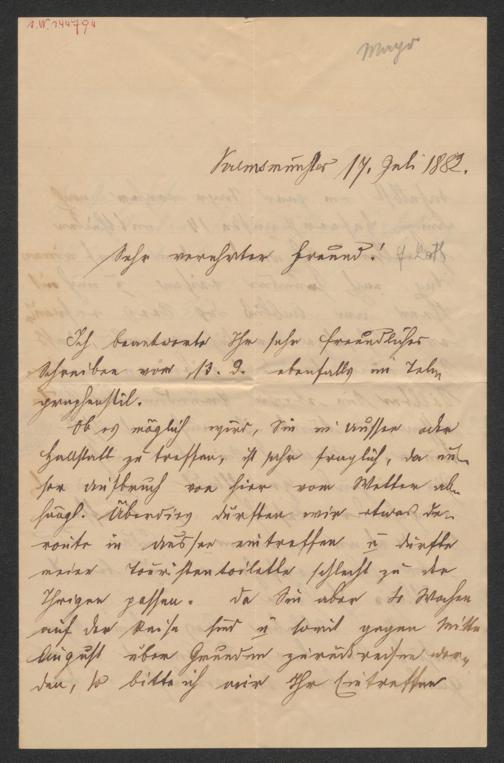 I.N. 144794
Mayr
Kremsmünster 17. Juli 1882.
Sehr verehrter Freund!
Ich beantworte Ihr sehr freundliches
Schreiben vom 13. d. ebenfalls im Tele-
graphenstil.
Ob es möglich wird, Sie in Aussee oder
Hallstatt zu treffen, ist sehr fraglich, da un-
ser Aufbruch von hier vom Wetter ab-
hängt. Überdies dürften wir etwas de-
route in Aussee eintreffen u dürfte
meine Touristentoilette schlecht zu der
Ihrigen passen. Da Sie aber 4 Wochen
auf der Reise sind u somit gegen Mitte
August über Gmunden zurückreisen wer-
den, so bitte ich mir Ihr Eintreffen